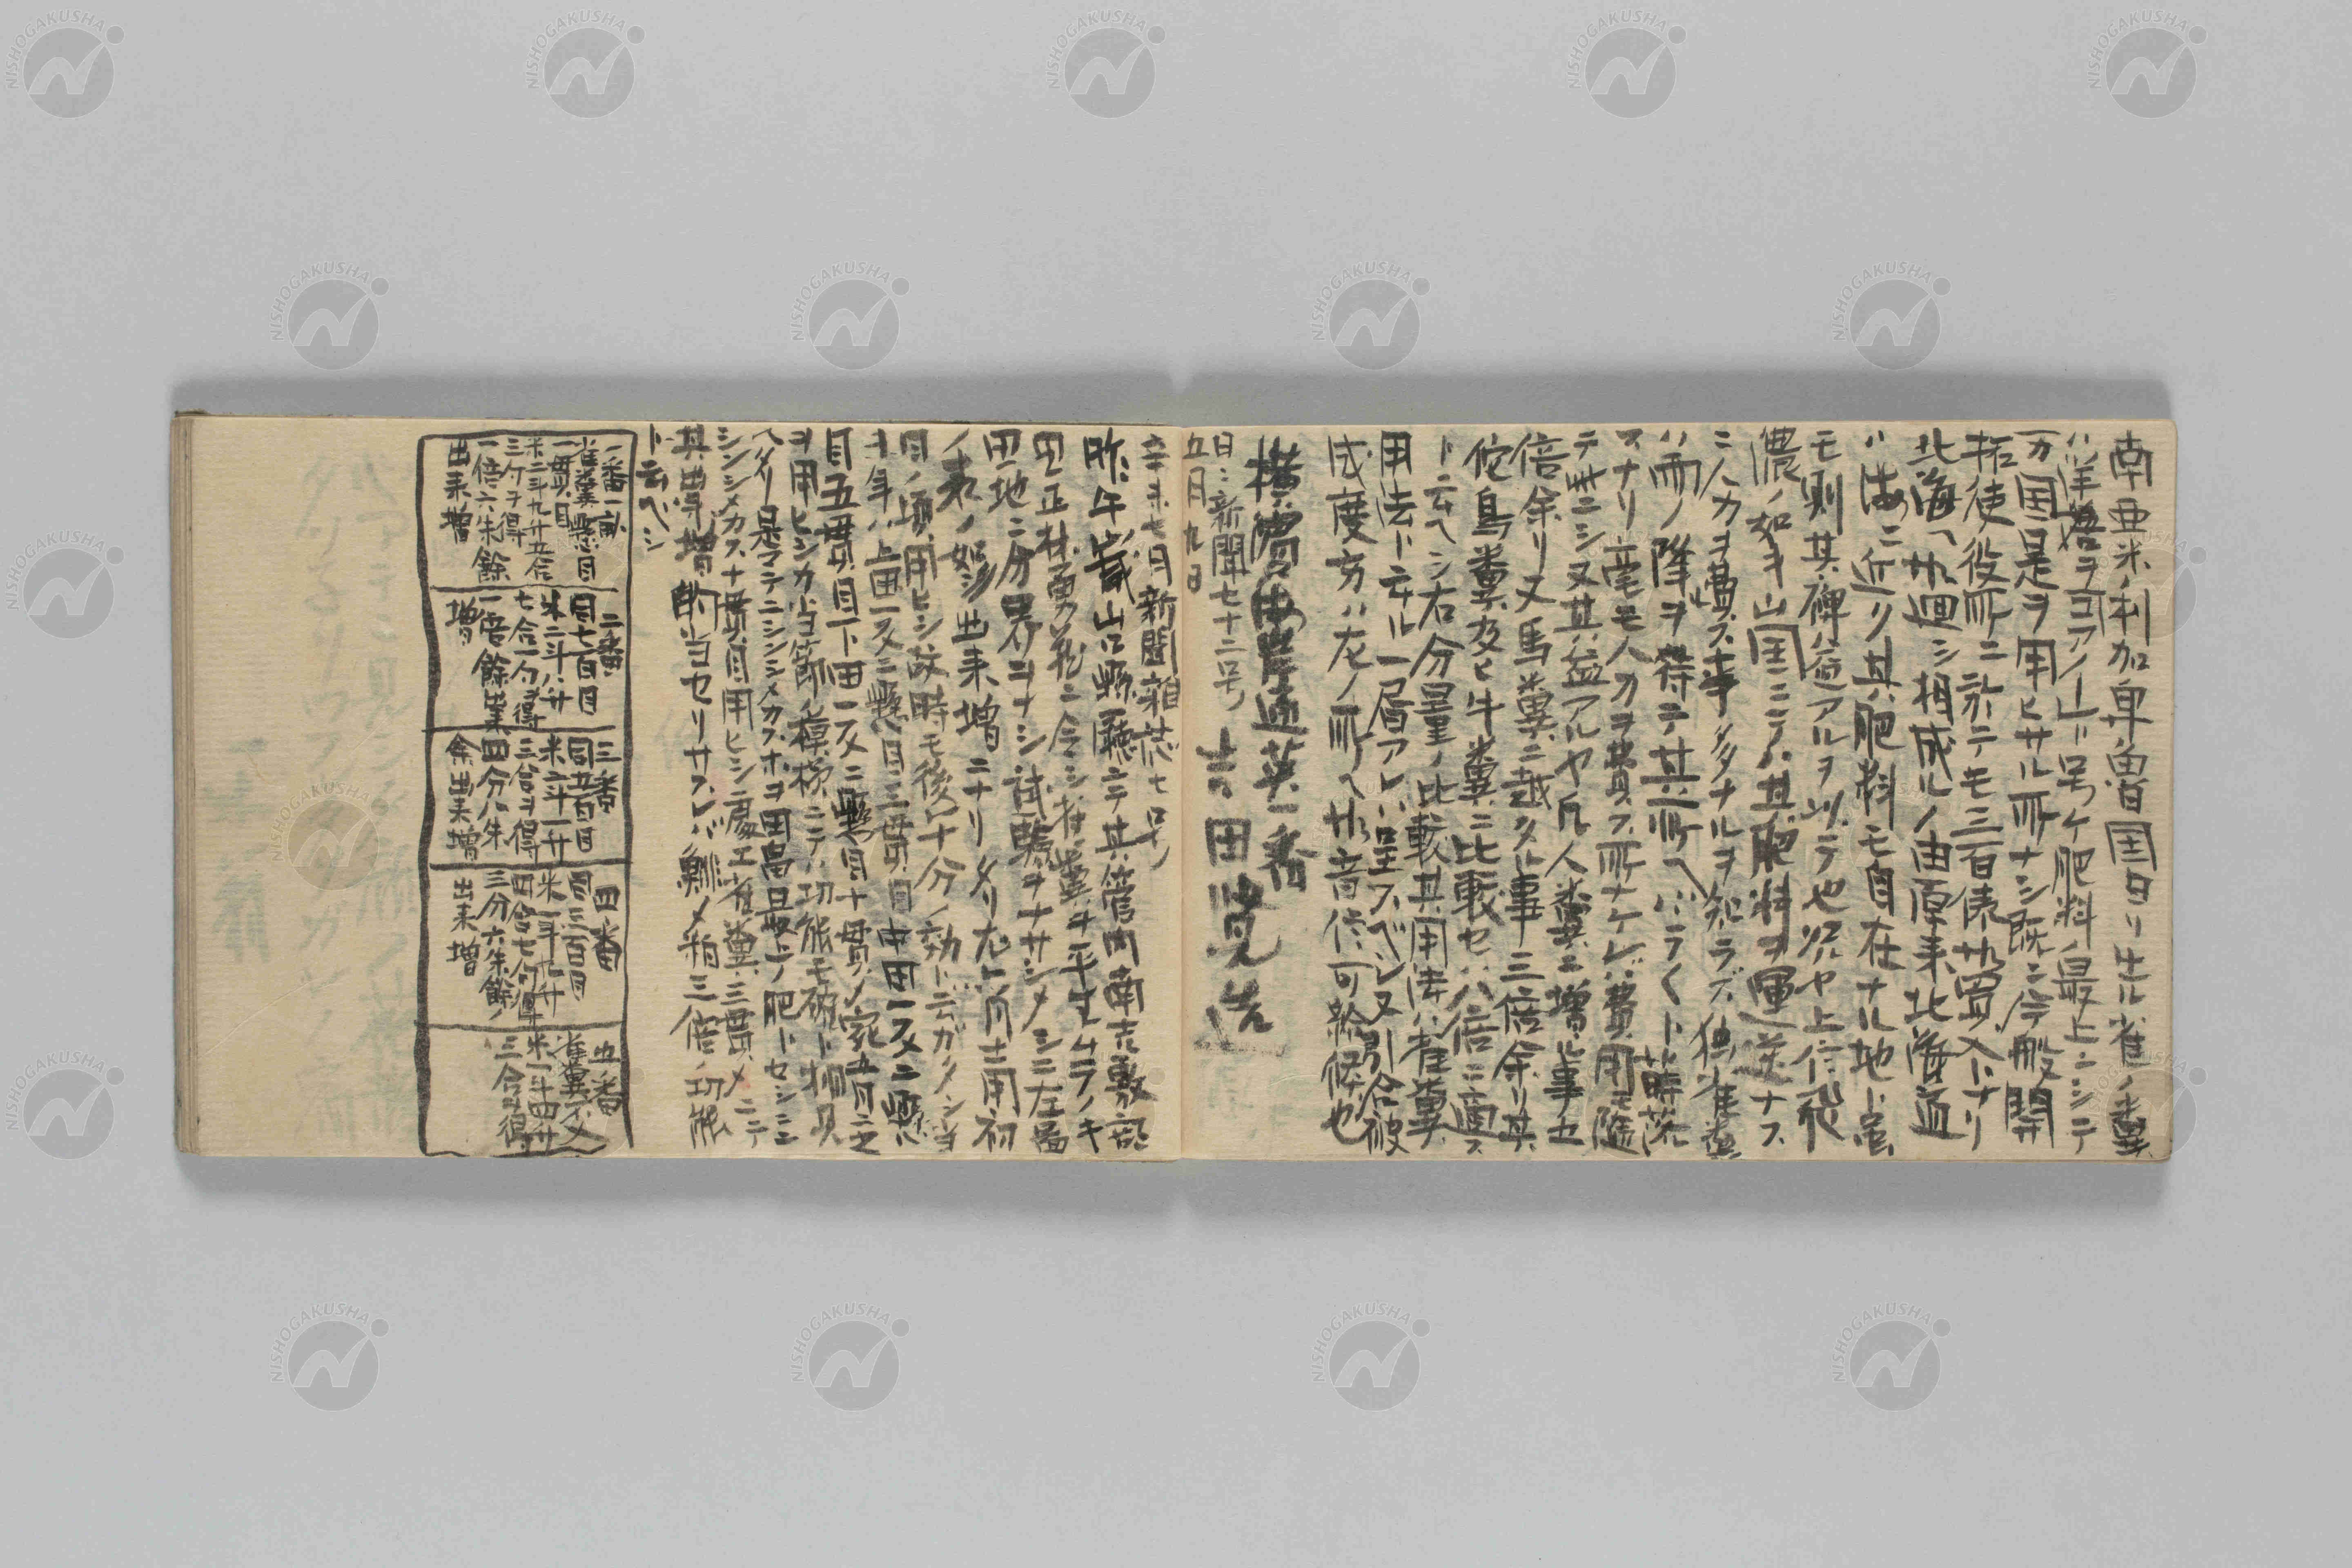 南亜米利加卑魯国ヨリ出ル雀ノ糞
ハ洋語ヲコアノト号ケ肥料最上ニシテ
万国是ヲ用ヒサル所ナシ既ニ今般開
拓使役所ニ於テモ三百俵廾買入トナリ
北海ヘ廾廻シ相成ルノ由原来北海道
ハ海ニ近ク其肥料モ自在ナル地ト雖
モ則其裨益アルヲ以テ也況ヤ上信飛
濃ノ如キ山国ニテハ其肥料ヲ運送ナス
ニ人力ヲ費ス事ノ多ナルヲ知ラズ独雀糞
ハ雨ノ降ヲ待テ其所ヘバラ〱ト蒔流
スナリ毫モ人力ヲ費ス所ナケレバ費用モ随
テ少ニシ又其益アルヤ凡人糞ニ増ル事五
倍余リ又馬糞ニ越ル事三倍余リ其
佗鳥糞及ヒ牛糞ニ比較セハ八倍ニ適ス
ト云ヘシ右分量ノ比較其用法ハ雀糞
用法ト云ル一層アレハ呈スベシ又引合被
成度方ハ左ノ所ヘ廾音信可給候也
横濱海岸通英一番
吉田覚造
日々新聞七十二号
五月九日
辛未七月新聞雑誌七号
昨午歳山口縣廳ニテ其管内南吉敷部
田正林勇菀ニ令シ雀糞ヲ平生ムラノキ
田地ニ分界ヲナシ試験ヲナサシメシニ左畐
ノ表ノ如ク出来増ニナリタリ尤六月土用初
目ノ頃用ヒシ故時モ後レ十分ノ効ト云ガタシ当
年ハ上田一反ニ懸目三貫目中田一反ニ懸
目五貫目下田一反ニ懸目十貫ノ宛五月ニ之
ヲ用ヒシカ当節ノ模様ニテハ功能モ確ト相見
ヘタリ是マテニシンシメカスホヲ田畠最上ノ肥トセシニ
シンシメカス十貫目用ヒシ處エ雀糞三貫メニテ
其出等増的当セリサスレバ鯡〆粕三倍ノ功能
ト云ヘシ
一番一畝
雀糞懸目
一貫目
米二斗九升五合
三夕ヲ得
一倍六朱餘
出来増
二番
同七百目
米二斗八升
七合一勺ヲ得
一倍餘出来
増
三番
同五百目
米二斗一升
三合ヲ得
四分八朱
余出来増
四番
同三百目
四合七勺ヲ得
三分六朱餘ノ
出来増
五番
雀糞不用
米一斗四升
三合ヲ得